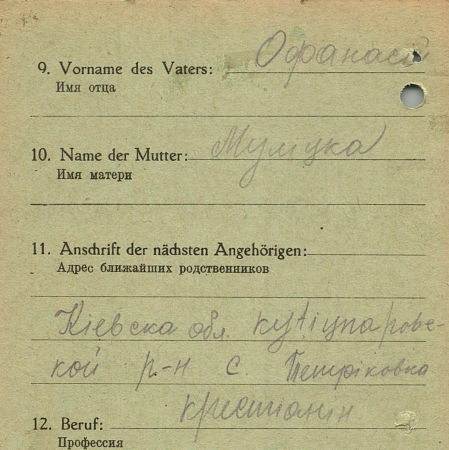 9. Vorname des Vaters: Офанасій
Имя отца
10. Name der Mutter:
Имя матери
11. Anschrift der nächsten Angehörigen:
Адрес ближайших родственников
Кіевска обл.
кой р-н с. Петріковка
крестіанін
12. Beruf:
Профессия